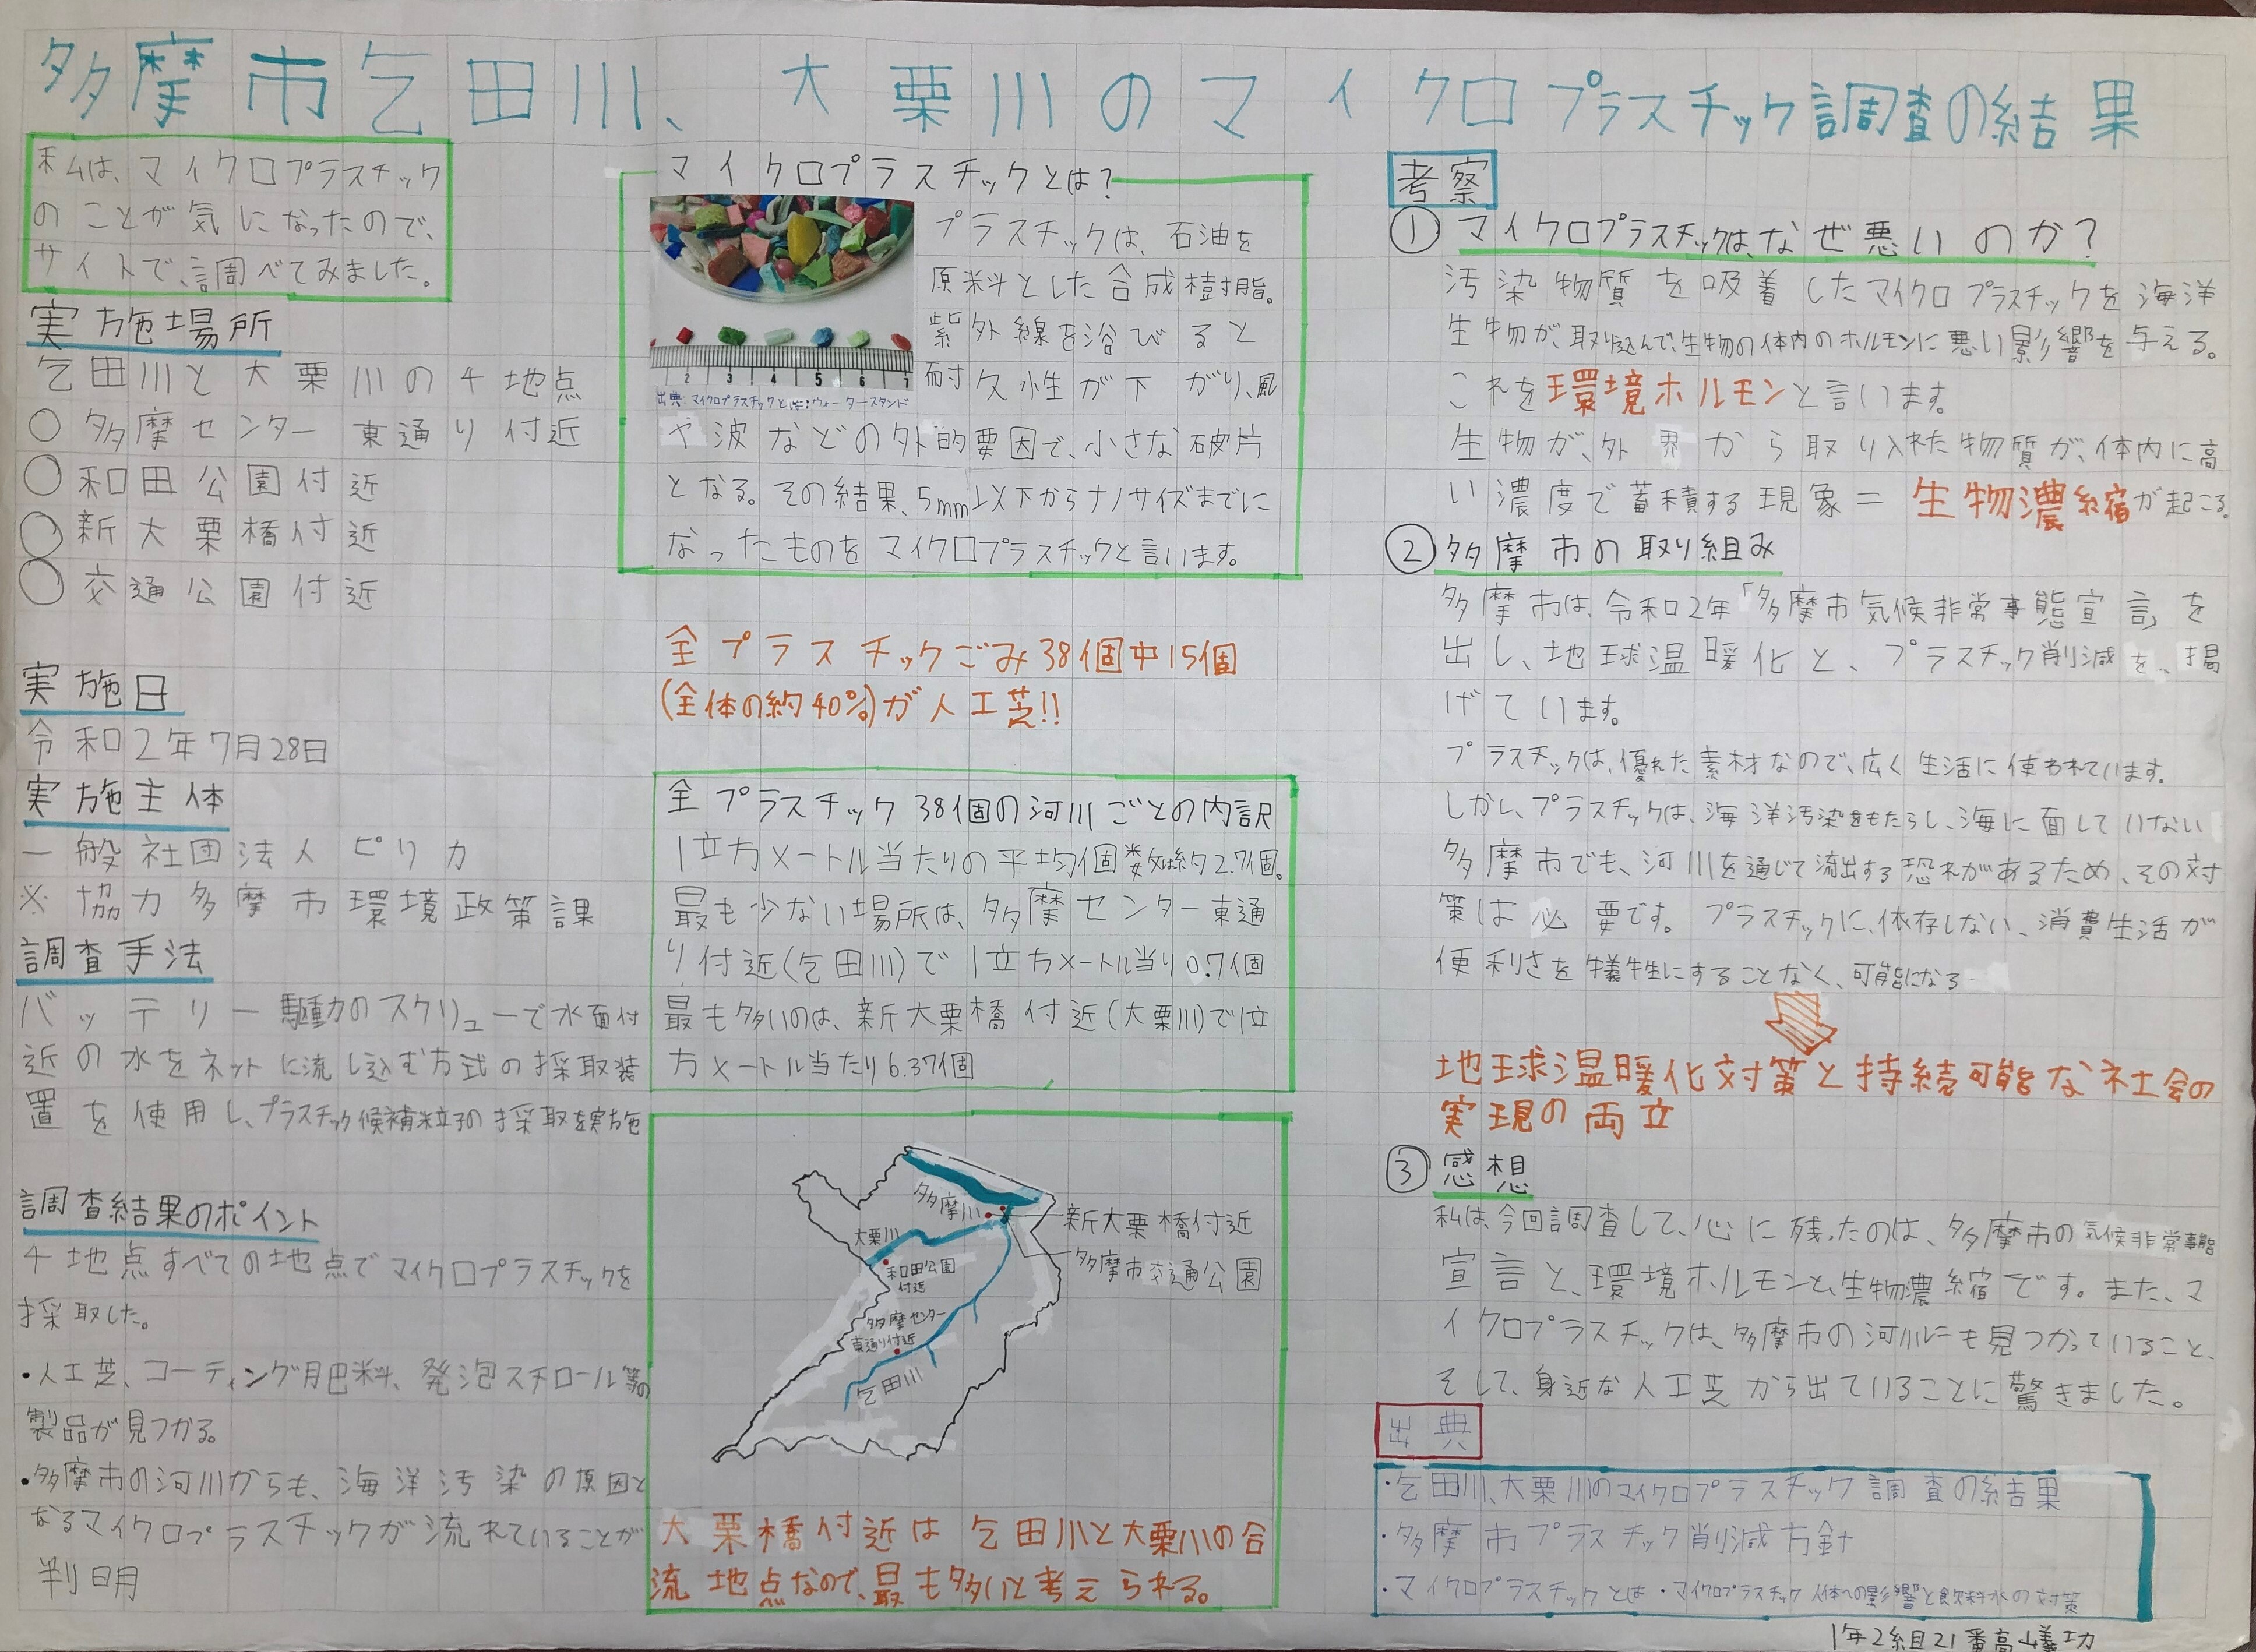 多摩市乞田川、大栗川のマイクロプラスチック調査の結果
私は、マイクロプラスチック
のことが気になったので、
サイトで、調べてみました。
実施場所
乞田川と大栗川の4地点
○多摩センター東通り付近
○和田公園付近
○新大栗橋付近
○交通公園付近
実施日
令和2年7月28日
実施主体
一般社団法人ピリカ
※協力多摩市環境政策課
調査手法
バッテリー駆動力のスクリューで水面付
近の水をネットに流し込む方式の採取装
置を使用し、プラスチック候補粒子の採取を実施
調査結果のポイント
4地点すべての地点でマイクロプラスチックを
採取した。
・人工芝、コーティング肥料、発泡スチロール等の
製品が見つかる。
・多摩市の河川からも、海洋汚染の原因と
なるマイクロプラスチックが流れていることが
判明
マイクロプラスチックとは?
プラスチックは、石油を
原料とした合成樹脂。
紫外線を浴びると
耐久性が下がり、風
や波などの外的要因で、小さな破片
となる。その結果、5mm以下からナノサイズまでに
なったものをマイクロプラスチックと言います。
2 3 4 5 6 7
出典:マイクロプラスチックとは:ウォータースタンド
全プラスチックごみ38個中15個
(全体の約40%)が人工芝!!
全プラスチック38個の河川ごとの内訳
1立方メートル当たりの平均個数は約2.7個。
最も少ない場所は、多摩センター東通
り付近(乞田川)で1立方メートル当り0.7個
最も多いのは、新大栗橋付近(大栗川)で1立
方メートル当たり6.37個
多摩川
新大栗橋付近
大栗川
多摩市交通公園
和田公園
付近
多摩センター
東通り付近
乞田川
大栗橋付近は乞田川と大栗川の合
流地点なので、最も多いと考えられる。
考察
①マイクロプラスチックは、なぜ悪いのか?
汚染物質を吸着したマイクロプラスチックを海洋
生物が、取り込んで、生物の体内のホルモンに悪い影響を与える。
これを環境ホルモンと言います。
生物が、外界から取り入れた物質が、体内に高
い濃度で蓄積する現象=生物濃縮が起こる。
②多摩市の取り組み
多摩市は、令和2年「多摩市気候非常事態宣言」を
出し、地球温暖化と、プラスチック削減を、掲
げています。
プラスチックは、優れた素材なので、広く生活に使われています。
しかし、プラスチックは、海洋汚染をもたらし、海に面していない
多摩市でも、河川を通じて流出する恐れがあるため、その対
策は必要です。プラスチックに、依存しない、消費生活が
便利さを犠牲にすることなく、可能になる
地球温暖化対策と持続可能な社会の
実現の両立
③感想
私は、今回調査して、心に残ったのは、多摩市の気候非常事態
宣言と、環境ホルモンと、生物濃縮です。また、マ
イクロプラスチックは、多摩市の河川にも見つかっていること、
そして、身近な人工芝から出ていることに驚きました。
出典
・乞田川、大栗川のマイクロプラスチック調査の結果
・多摩市プラスチック削減方針
・マイクロプラスチックとは・マイクロプラスチック人体への影響と飲料水の対策
1年2組21番高